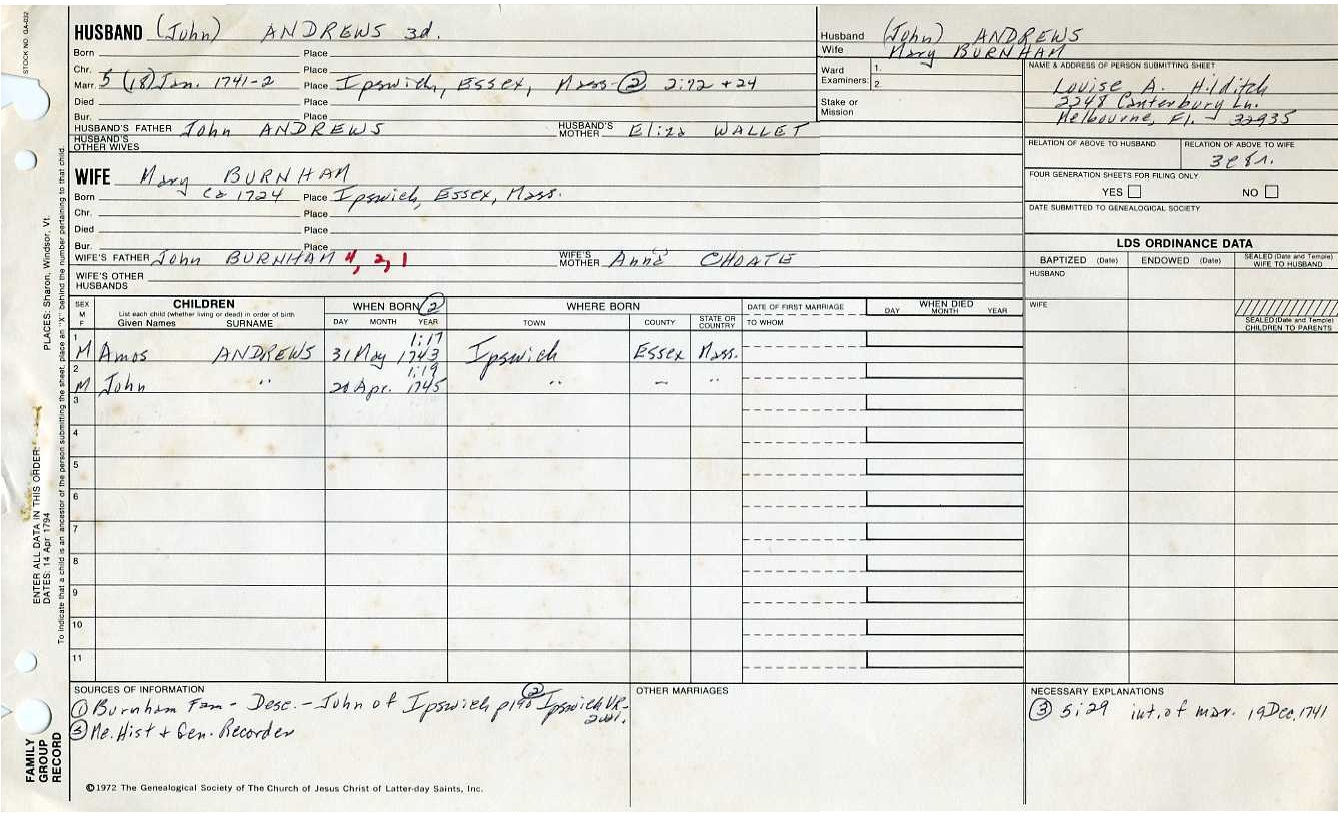 STOCK NO. GA-032
HUSBAND (John) ANDREWS 3d.
Born Place
Chr. Place
Marr. 5 (18) Jan. 1741-2 Place Ipswich, Essex, Mass. ② 2:72 + 24
Died Place
Bur. Place
HUSBAND'S FATHER John ANDREWS HUSBAND'S MOTHER Eliza WALLET
HUSBAND'S OTHER WIVES
WIFE Mary BURNHAM
Born Ca 1724 Place Ipswich, Essex, Mass.
Chr. Place
Died Place
Bur. Place
WIFE'S FATHER John BURNHAM 4, 2, 1 WIFE'S MOTHER Anna CHOATE
WIFE'S OTHER HUSBANDS
Husband (John) ANDREWS
Wife Mary BURNHAM
Ward Examiners: 1. 2.
Stake or Mission
NAME & ADDRESS OF PERSON SUBMITTING SHEET
Louise A. Hilditch
2248 Canterbury Ln.
Melbourne, Fl. 32935
RELATION OF ABOVE TO HUSBAND RELATION OF ABOVE TO WIFE
FOUR GENERATION SHEETS FOR FILING ONLY
YES NO
DATE SUBMITTED TO GENEALOGICAL SOCIETY
LDS ORDINANCE DATA
BAPTIZED (Date) ENDOWED (Date) SEALED (Date and Temple) WIFE TO HUSBAND
HUSBAND
WIFE
SEALED (Date and Temple) CHILDREN TO PARENTS
SEX M F
CHILDREN
List each child (whether living or dead) in order of birth
Given Names SURNAME
WHEN BORN ②
DAY MONTH YEAR
WHERE BORN
TOWN COUNTY STATE OR COUNTRY
DATE OF FIRST MARRIAGE
TO WHOM
WHEN DIED
DAY MONTH YEAR
1:17
1 M Amos ANDREWS 31 May 1743 Ipswich Essex Mass.
1:19
2 M John " 20 Apr. 1745 " " "
3
4
5
6
7
8
9
10
11
SOURCES OF INFORMATION
① Burnham Fam - Desc. - John of Ipswich p190 ② Ipswich VR-
③ Me. Hist + Gen. Recorder
OTHER MARRIAGES
NECESSARY EXPLANATIONS
③ 5:29 int. of mar. 19 Dec. 1741
©1972 The Genealogical Society of The Church of Jesus Christ of Latter-day Saints, Inc.
FAMILY GROUP RECORD
ENTER ALL DATA IN THIS ORDER:
DATES: 14 Apr 1794
PLACES: Sharon, Windsor, Vt.
To indicate that a child is an ancestor of the person submitting the sheet, place an "X" behind the number pertaining to that child.